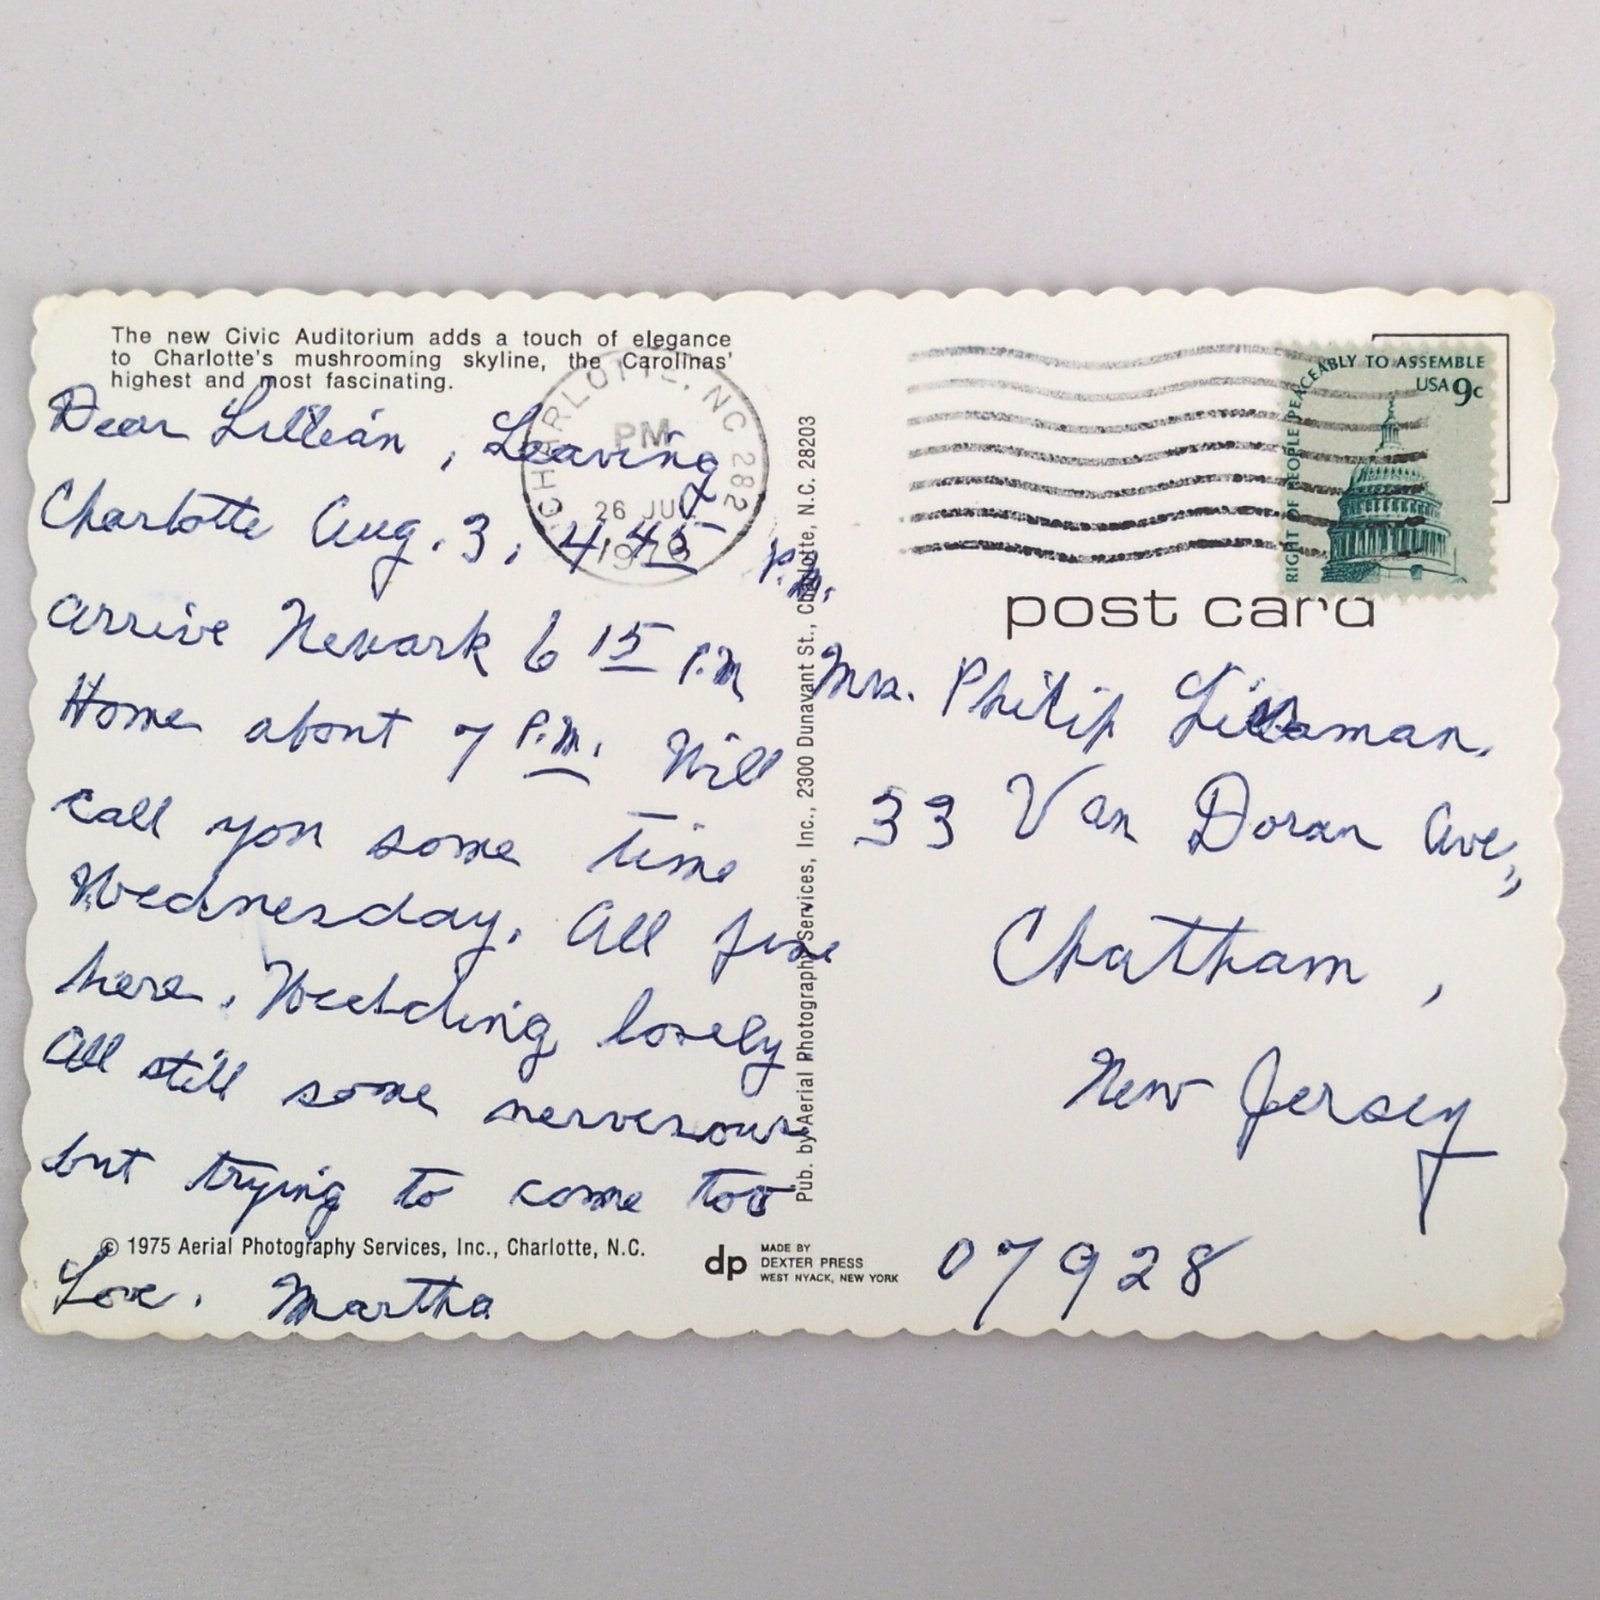 The new Civic Auditorium adds a touch of elegance
to Charlotte's mushrooming skyline, the Carolinas'
highest and most fascinating.
Dear Lillian, Leaving
Charlotte Aug. 3, 4,45 P.M.
arrive Newark 6 15 P.M
Home about 7 P.M. Will
call you some time
Wednesday. All fine
here. Wedding lovely
All still some nervesous
but trying to come too
Love. Martha
© 1975 Aerial Photography Services, Inc., Charlotte, N.C.
dp
MADE BY
DEXTER PRESS
WEST NYACK, NEW YORK
Pub. by Aerial Photography Services, Inc., 2300 Dunavant St., Charlotte, N.C. 28203
CHARLOTTE, NC 282
PM
26 JUL
RIGHT OF PEOPLE PEACEABLY TO ASSEMBLE
USA 9c
post card
Mrs. Philip
33 Van Doran Ave.,
Chatham,
New Jersey
07928